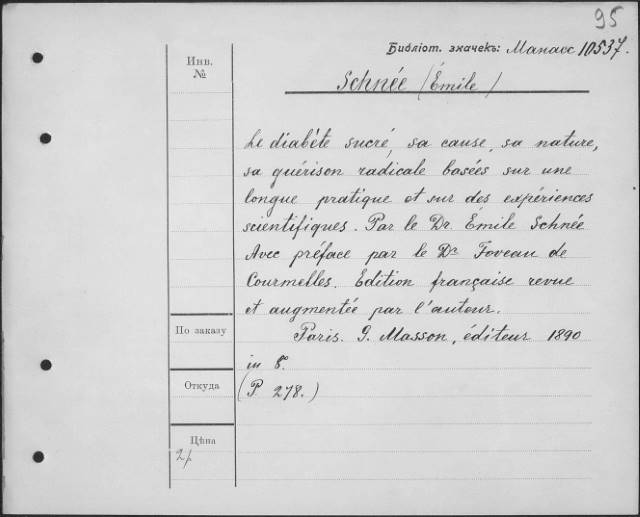 95
Библіот. значекъ: Манасс 10537.
Инв.
№
Schnée (Émile)
Le diabéte sucré, sa cause, sa nature,
sa guérison radicale basées sur une
longue pratique et sur des expériences
scientifiques. Par le Dr. Émile Schnée
Avec préface par le Dr Foveau de
Courmelles. Edition française revue
et augmentée par l'auteur.
По заказу
Paris. G. Masson, éditeur 1890
in 8.
Откуда
(P. 278.)
Цѣна